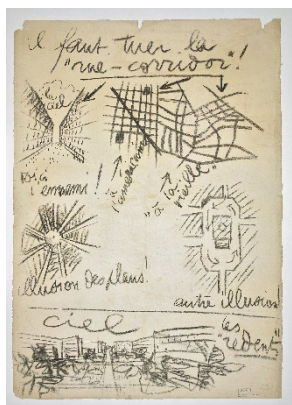 il faut tuer la
"rue-corridor"!
ciel
voilà
l'ennemi!
à l'américaine
"à la
vieille"
illusion des plans!
autre illusion!
ciel
les
"redents"